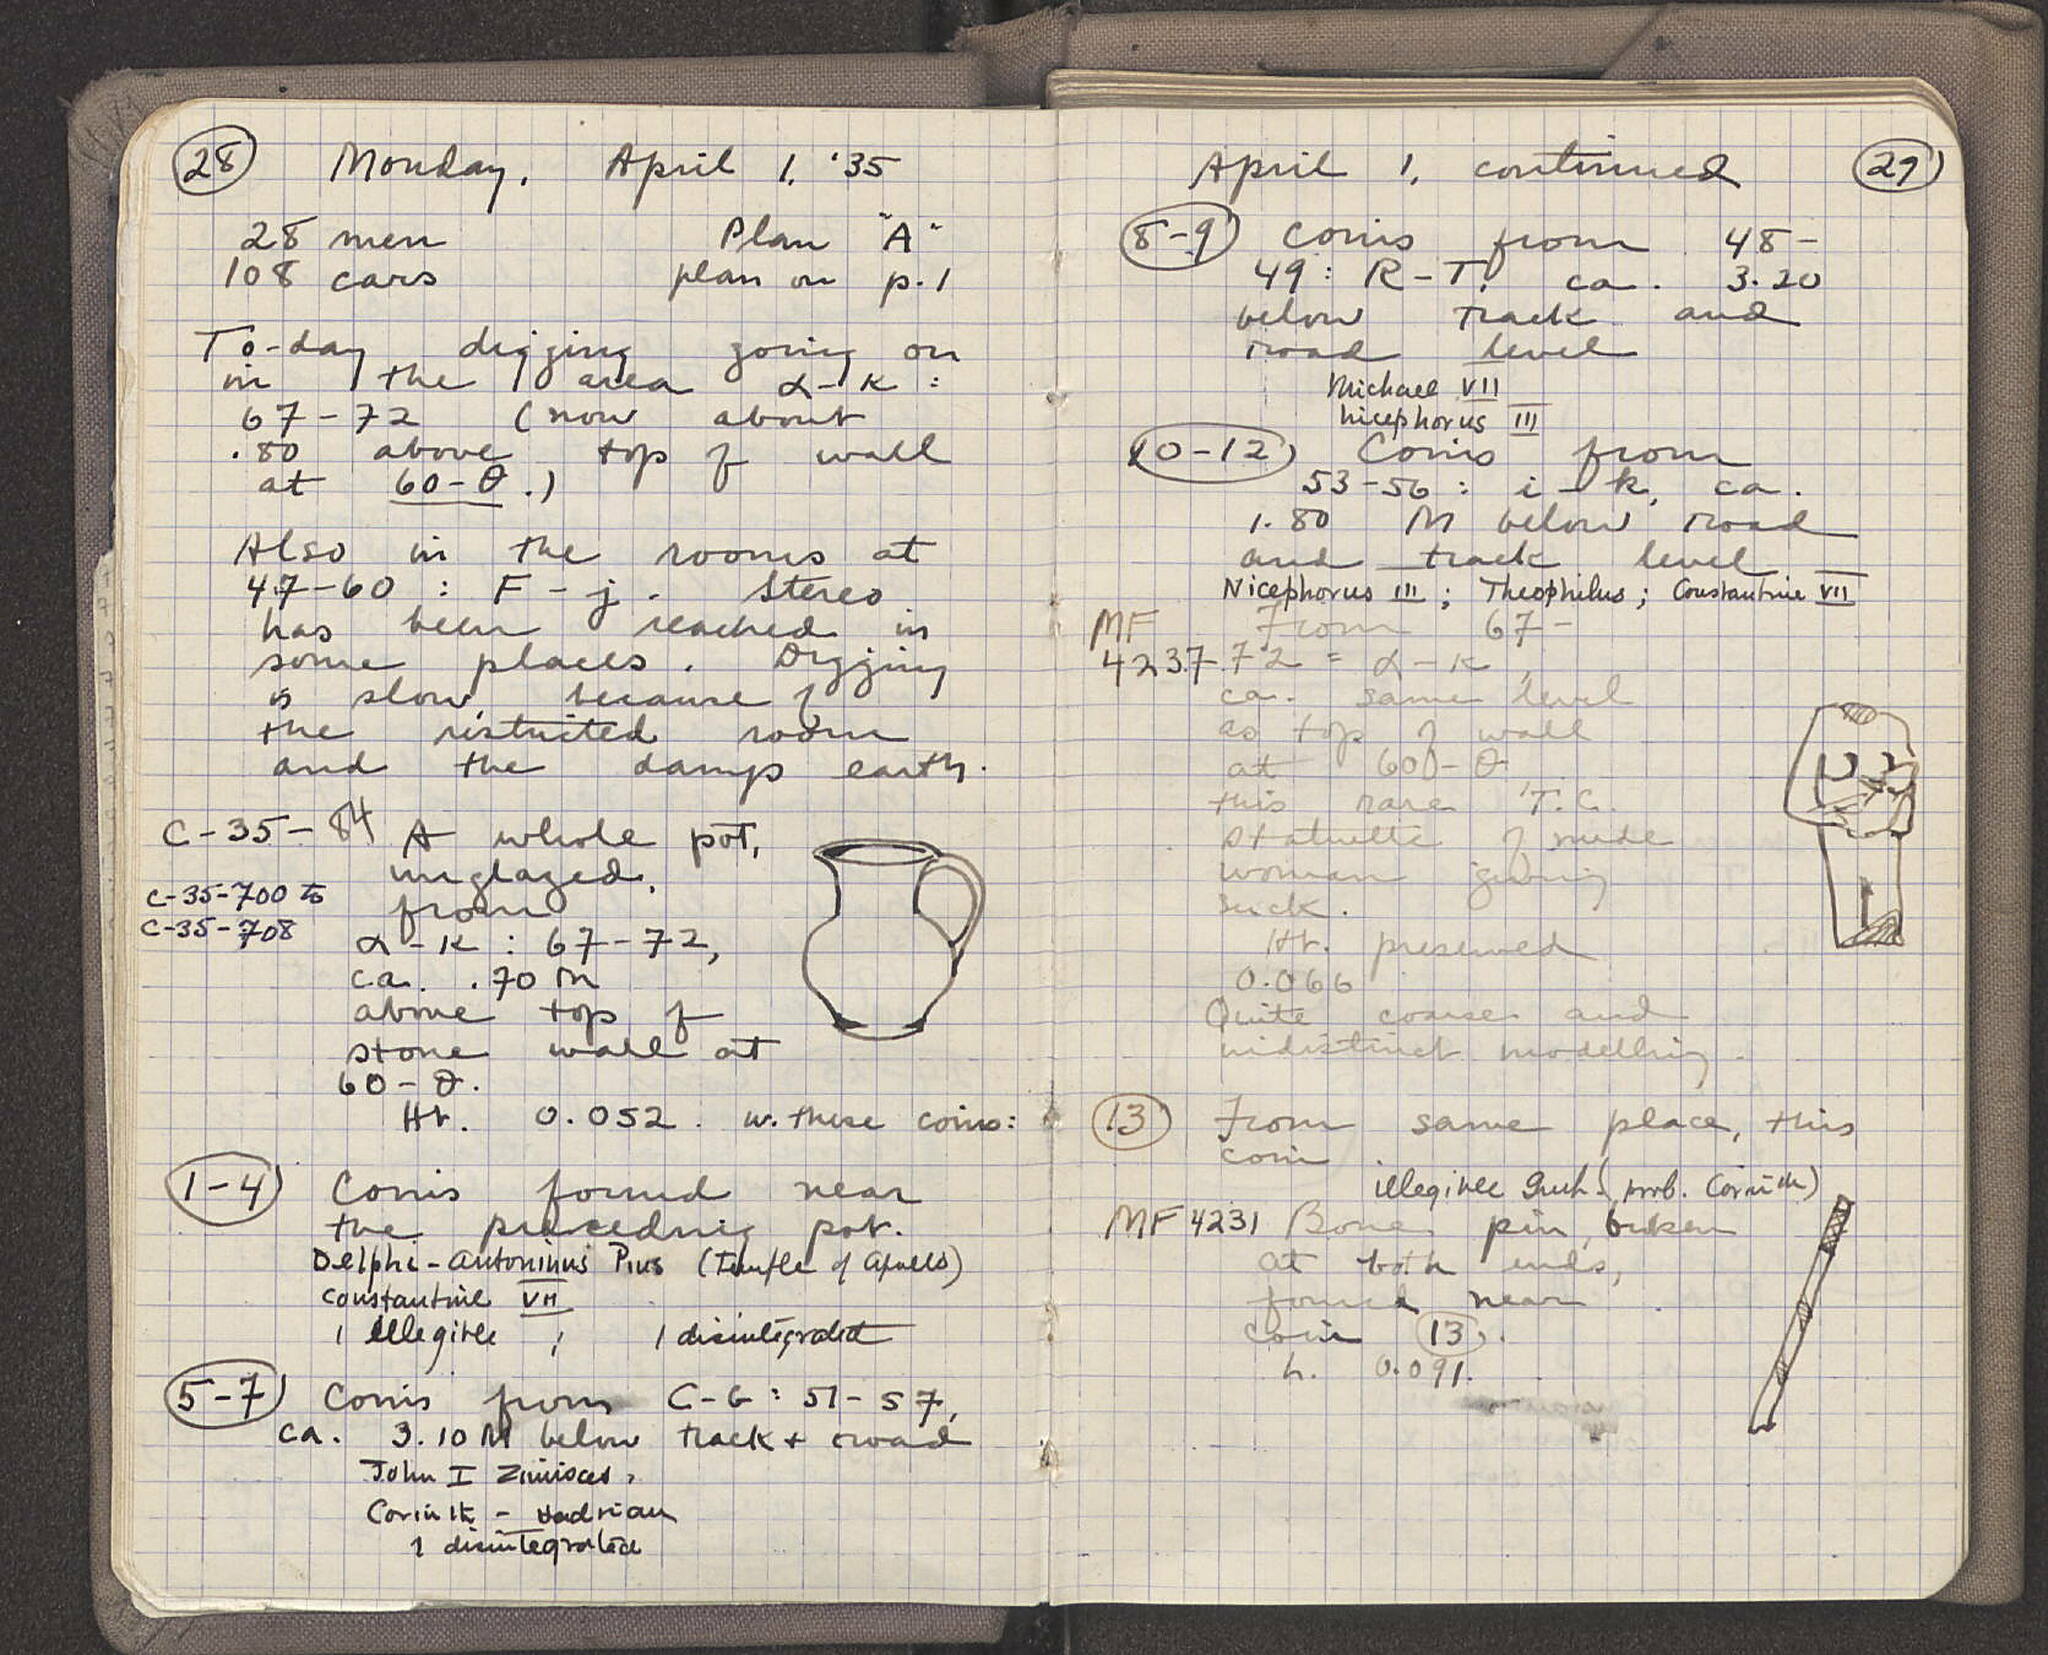 28 Monday, April 1, '35
28 men Plan "A"
108 cars plan on p.1
To-day digging going on
in the area α-κ :
67-72 (now about
.80 above top of wall
at 60-θ.)
Also in the rooms at
47-60 : F-j. Stereo
has been reached in
some places. Digging
is slow, because of
the restricted room
and the damp earth.
C-35-84 A whole pot,
unglazed,
C-35-700 to
from
C-35-708
α-κ : 67-72,
ca. .70 M
above top of
stone wall at
60-θ.
Ht. 0.052. w. these coins:
1-4 Coins found near
the preceding pot.
Delphi - Antoninus Pius (Temple of Apollo)
Constantine VII
1 illegible ; 1 disintegrated
5-7 Coins from C-G : 51-57,
ca. 3.10 M below track + road
John I Zimisces,
Corinth - Hadrian
1 disintegrated
April 1, continued 29
8-9 Coins from 48-
49 : R-T, ca. 3.20
below track and
road level
Michael VII
Nicephorus III
10-12 Coins from
53-56 : i-k, ca.
1.80 M below road
and track level
Nicephorus III ; Theophilus ; Constantine VII
MF From 67-
4237 72 = α-κ,
ca. same level
as top of wall
at 60-θ
this rare T.C.
statuette of nude
woman giving
suck.
Ht. preserved
0.066
Quite coarse and
indistinct modelling.
13 From same place, this
coin
illegible Greek (prob. Corinth)
MF 4231 Bone pin, broken
at both ends,
found near
coin 13.
h. 0.091.